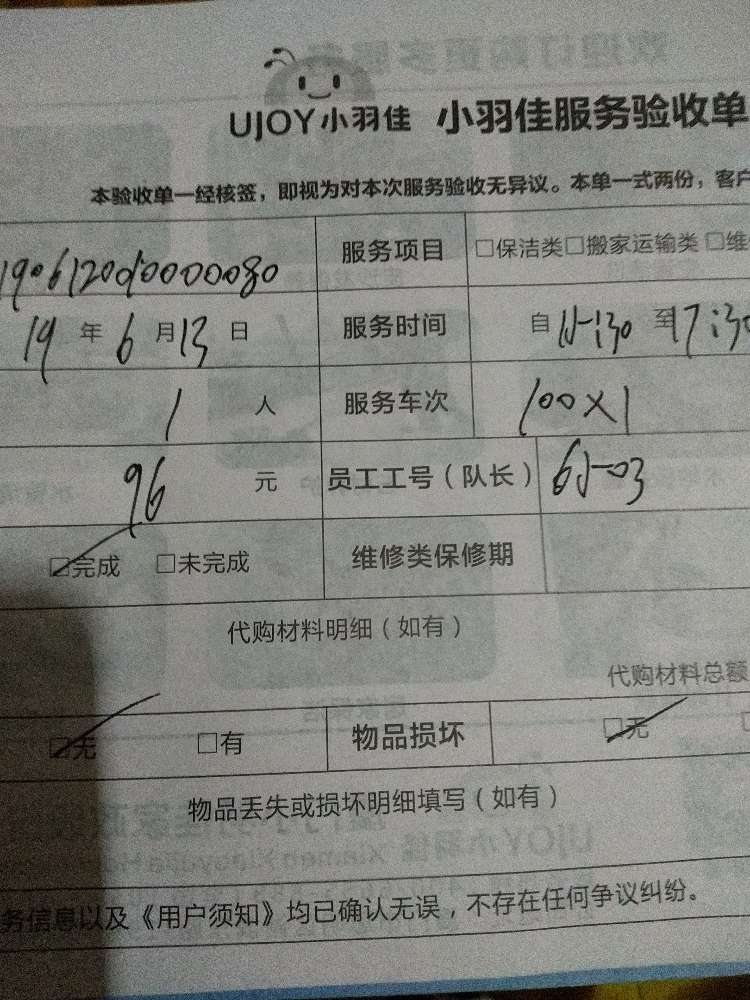 UJOY小羽佳 小羽佳服务验收单
本验收单一经核签，即视为对本次服务验收无异议。本单一式两份，客户
服务项目 □保洁类□搬家运输类□维
19年6月13日 服务时间 自 至17:30
1人 服务车次 100×1
96元 员工工号（队长）
☑完成 □未完成 维修类保修期
代购材料明细（如有）
代购材料总额
☑无 □有 物品损坏 ☑无
物品丢失或损坏明细填写（如有）
务信息以及《用户须知》均已确认无误，不存在任何争议纠纷。